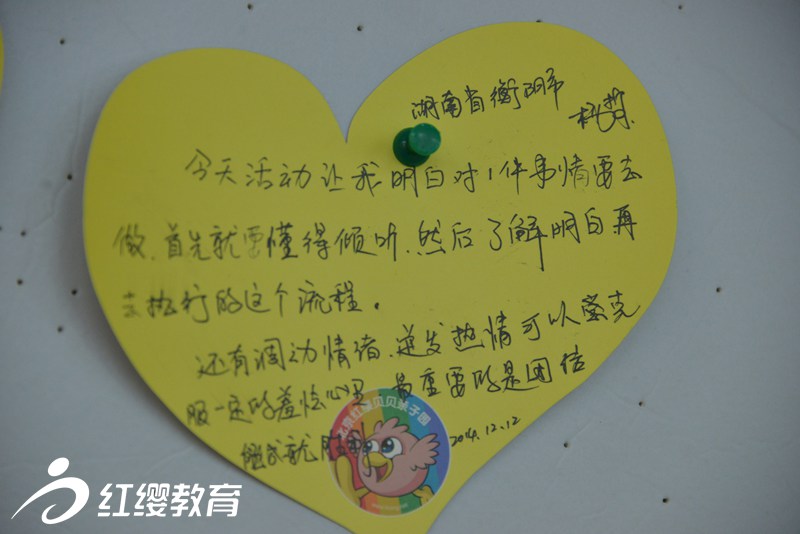 湖南省衡阳市
今天活动让我明白对1件事情要去
做.首先就要懂得倾听.然后了解明白再
去执行的这个流程。
还有调动情绪.迸发热情可以客克
服一定的羞怯心里 最重要的是团结
能成就
2014.12.12
红缨教育